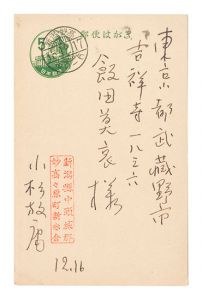 郵便はがき
東京都武蔵野市
吉祥寺一八三六
飯田美哀様
新潟県中頸城郡
妙高々原町新赤倉
小杉放庵
12.16
5